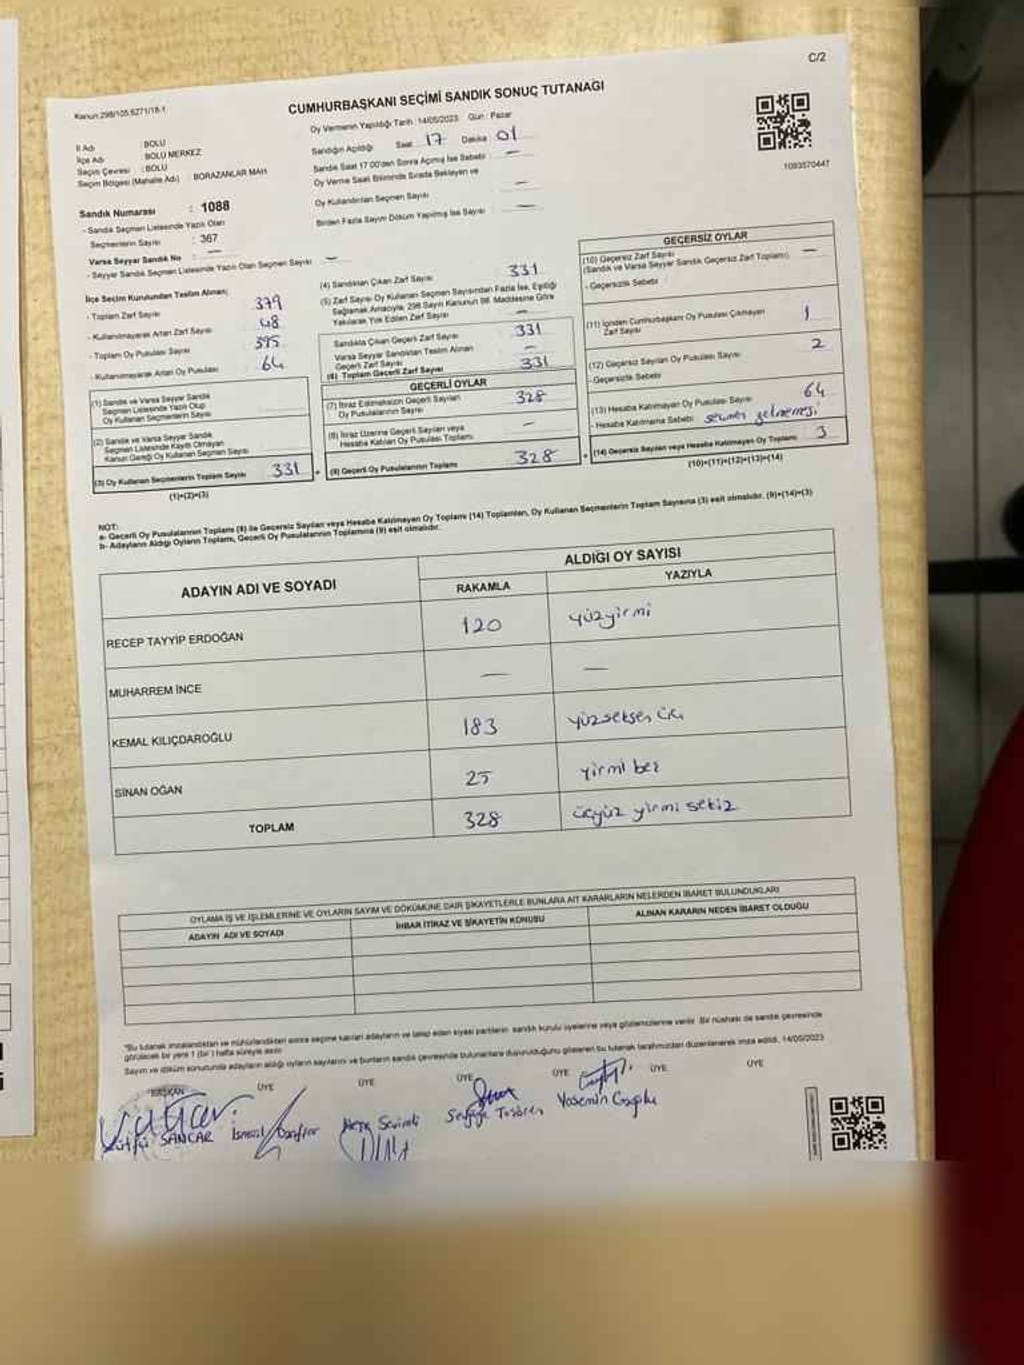 C/2
Kanun:298/105,6271/18-1
CUMHURBAŞKANI SEÇİMİ SANDIK SONUÇ TUTANAĞI
Oy Vermenin Yapıldığı Tarih : 14/05/2023 Gün : Pazar
Sandığın Açıldığı Saat 17 Dakika 01
Sandık Saat 17:00'den Sonra Açılmış İse Sebebi : —
Oy Verme Saati Bitiminde Sırada Bekleyen ve
Oy Kullandırılan Seçmen Sayısı : —
Birden Fazla Sayım Döküm Yapılmış İse Sayısı : —
1093570447
İl Adı : BOLU
İlçe Adı : BOLU MERKEZ
Seçim Çevresi : BOLU
Seçim Bölgesi (Mahalle Adı) : BORAZANLAR MAH
Sandık Numarası : 1088
- Sandık Seçmen Listesinde Yazılı Olan
Seçmenlerin Sayısı : 367
Varsa Seyyar Sandık No : —
- Seyyar Sandık Seçmen Listesinde Yazılı Olan Seçmen Sayısı : —
İlçe Seçim Kurulundan Teslim Alınan;
- Toplam Zarf Sayısı 379
- Kullanılmayarak Artan Zarf Sayısı 48
- Toplam Oy Pusulası Sayısı 395
- Kullanılmayarak Artan Oy Pusulası 64
(1) Sandık ve Varsa Seyyar Sandık
Seçmen Listesinde Yazılı Olup
Oy Kullanan Seçmenlerin Sayısı
(2) Sandık ve Varsa Seyyar Sandık
Seçmen Listesinde Kayıtlı Olmayan
Kanun Gereği Oy Kullanan Seçmen Sayısı
(3) Oy Kullanan Seçmenlerin Toplam Sayısı 331
(1)+(2)=(3)
(4) Sandıktan Çıkan Zarf Sayısı 331
(5) Zarf Sayısı Oy Kullanan Seçmen Sayısından Fazla İse, Eşitliği
Sağlamak Amacıyla; 298 Sayılı Kanunun 98. Maddesine Göre
Yakılarak Yok Edilen Zarf Sayısı —
Sandıkta Çıkan Geçerli Zarf Sayısı 331
Varsa Seyyar Sandıktan Teslim Alınan
Geçerli Zarf Sayısı —
(6) Toplam Geçerli Zarf Sayısı 331
GEÇERLİ OYLAR
(7) İtiraz Edilmeksizin Geçerli Sayılan
Oy Pusulalarının Sayısı 328
(8) İtiraz Üzerine Geçerli Sayılan veya
Hesaba Katılan Oy Pusulası Toplamı —
(9) Geçerli Oy Pusulalarının Toplamı 328
GEÇERSİZ OYLAR
(10) Geçersiz Zarf Sayısı
(Sandık ve Varsa Seyyar Sandık Geçersiz Zarf Toplamı) —
- Geçersizlik Sebebi :
(11) İçinden Cumhurbaşkanı Oy Pusulası Çıkmayan
Zarf Sayısı 1
(12) Geçersiz Sayılan Oy Pusulası Sayısı 2
-Geçersizlik Sebebi
(13) Hesaba Katılmayan Oy Pusulası Sayısı 64
- Hesaba Katılmama Sebebi: seçmen gelmemesi
(14) Geçersiz Sayılan veya Hesaba Katılmayan Oy Toplamı 3
(10)+(11)+(12)+(13)=(14)
NOT:
a- Geçerli Oy Pusulalarının Toplamı (9) ile Geçersiz Sayılan veya Hesaba Katılmayan Oy Toplamı (14) Toplamları, Oy Kullanan Seçmenlerin Toplam Sayısına (3) eşit olmalıdır. (9)+(14)=(3)
b- Adayların Aldığı Oyların Toplamı, Geçerli Oy Pusulalarının Toplamına (9) eşit olmalıdır.
ADAYIN ADI VE SOYADI
ALDIĞI OY SAYISI
RAKAMLA YAZIYLA
RECEP TAYYİP ERDOĞAN 120 yüzyirmi
MUHARREM İNCE — —
KEMAL KILIÇDAROĞLU 183 yüzseksen üç
SİNAN OĞAN 25 yirmi beş
TOPLAM 328 üçyüz yirmi sekiz
OYLAMA İŞ VE İŞLEMLERİNE VE OYLARIN SAYIM VE DÖKÜMÜNE DAİR ŞİKAYETLERLE BUNLARA AİT KARARLARIN NELERDEN İBARET BULUNDUKLARI
ADAYIN ADI VE SOYADI İHBAR İTİRAZ VE ŞİKAYETİN KONUSU ALINAN KARARIN NEDEN İBARET OLDUĞU
"Bu tutanak imzalandıktan ve mühürlendikten sonra seçime katılan adayların ve talep eden siyasi partilerin sandık kurulu üyelerine veya gözlemcilerine verilir. Bir nüshası da sandık çevresinde
görülecek bir yere 1 (bir) hafta süreyle asılır.
Sayım ve döküm sonucunda adayların aldığı oyların sayılarını ve bunların sandık çevresinde bulunanlara duyurulduğunu gösteren bu tutanak tarafımızdan düzenlenerek imza edildi. 14/05/2023
BAŞKAN ÜYE ÜYE ÜYE ÜYE ÜYE ÜYE
Lütfü SANCAR İsmail Sevimli Yasemin